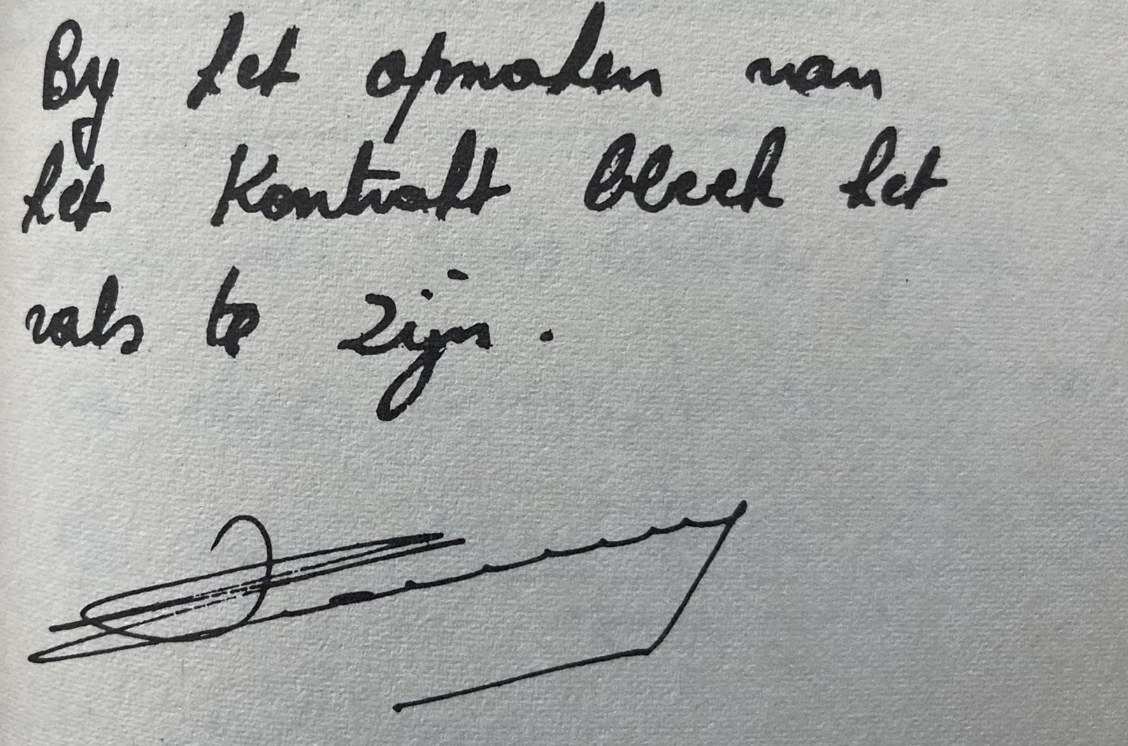 By het opmaken van
het Kontrakt bleek het
vals te zijn.